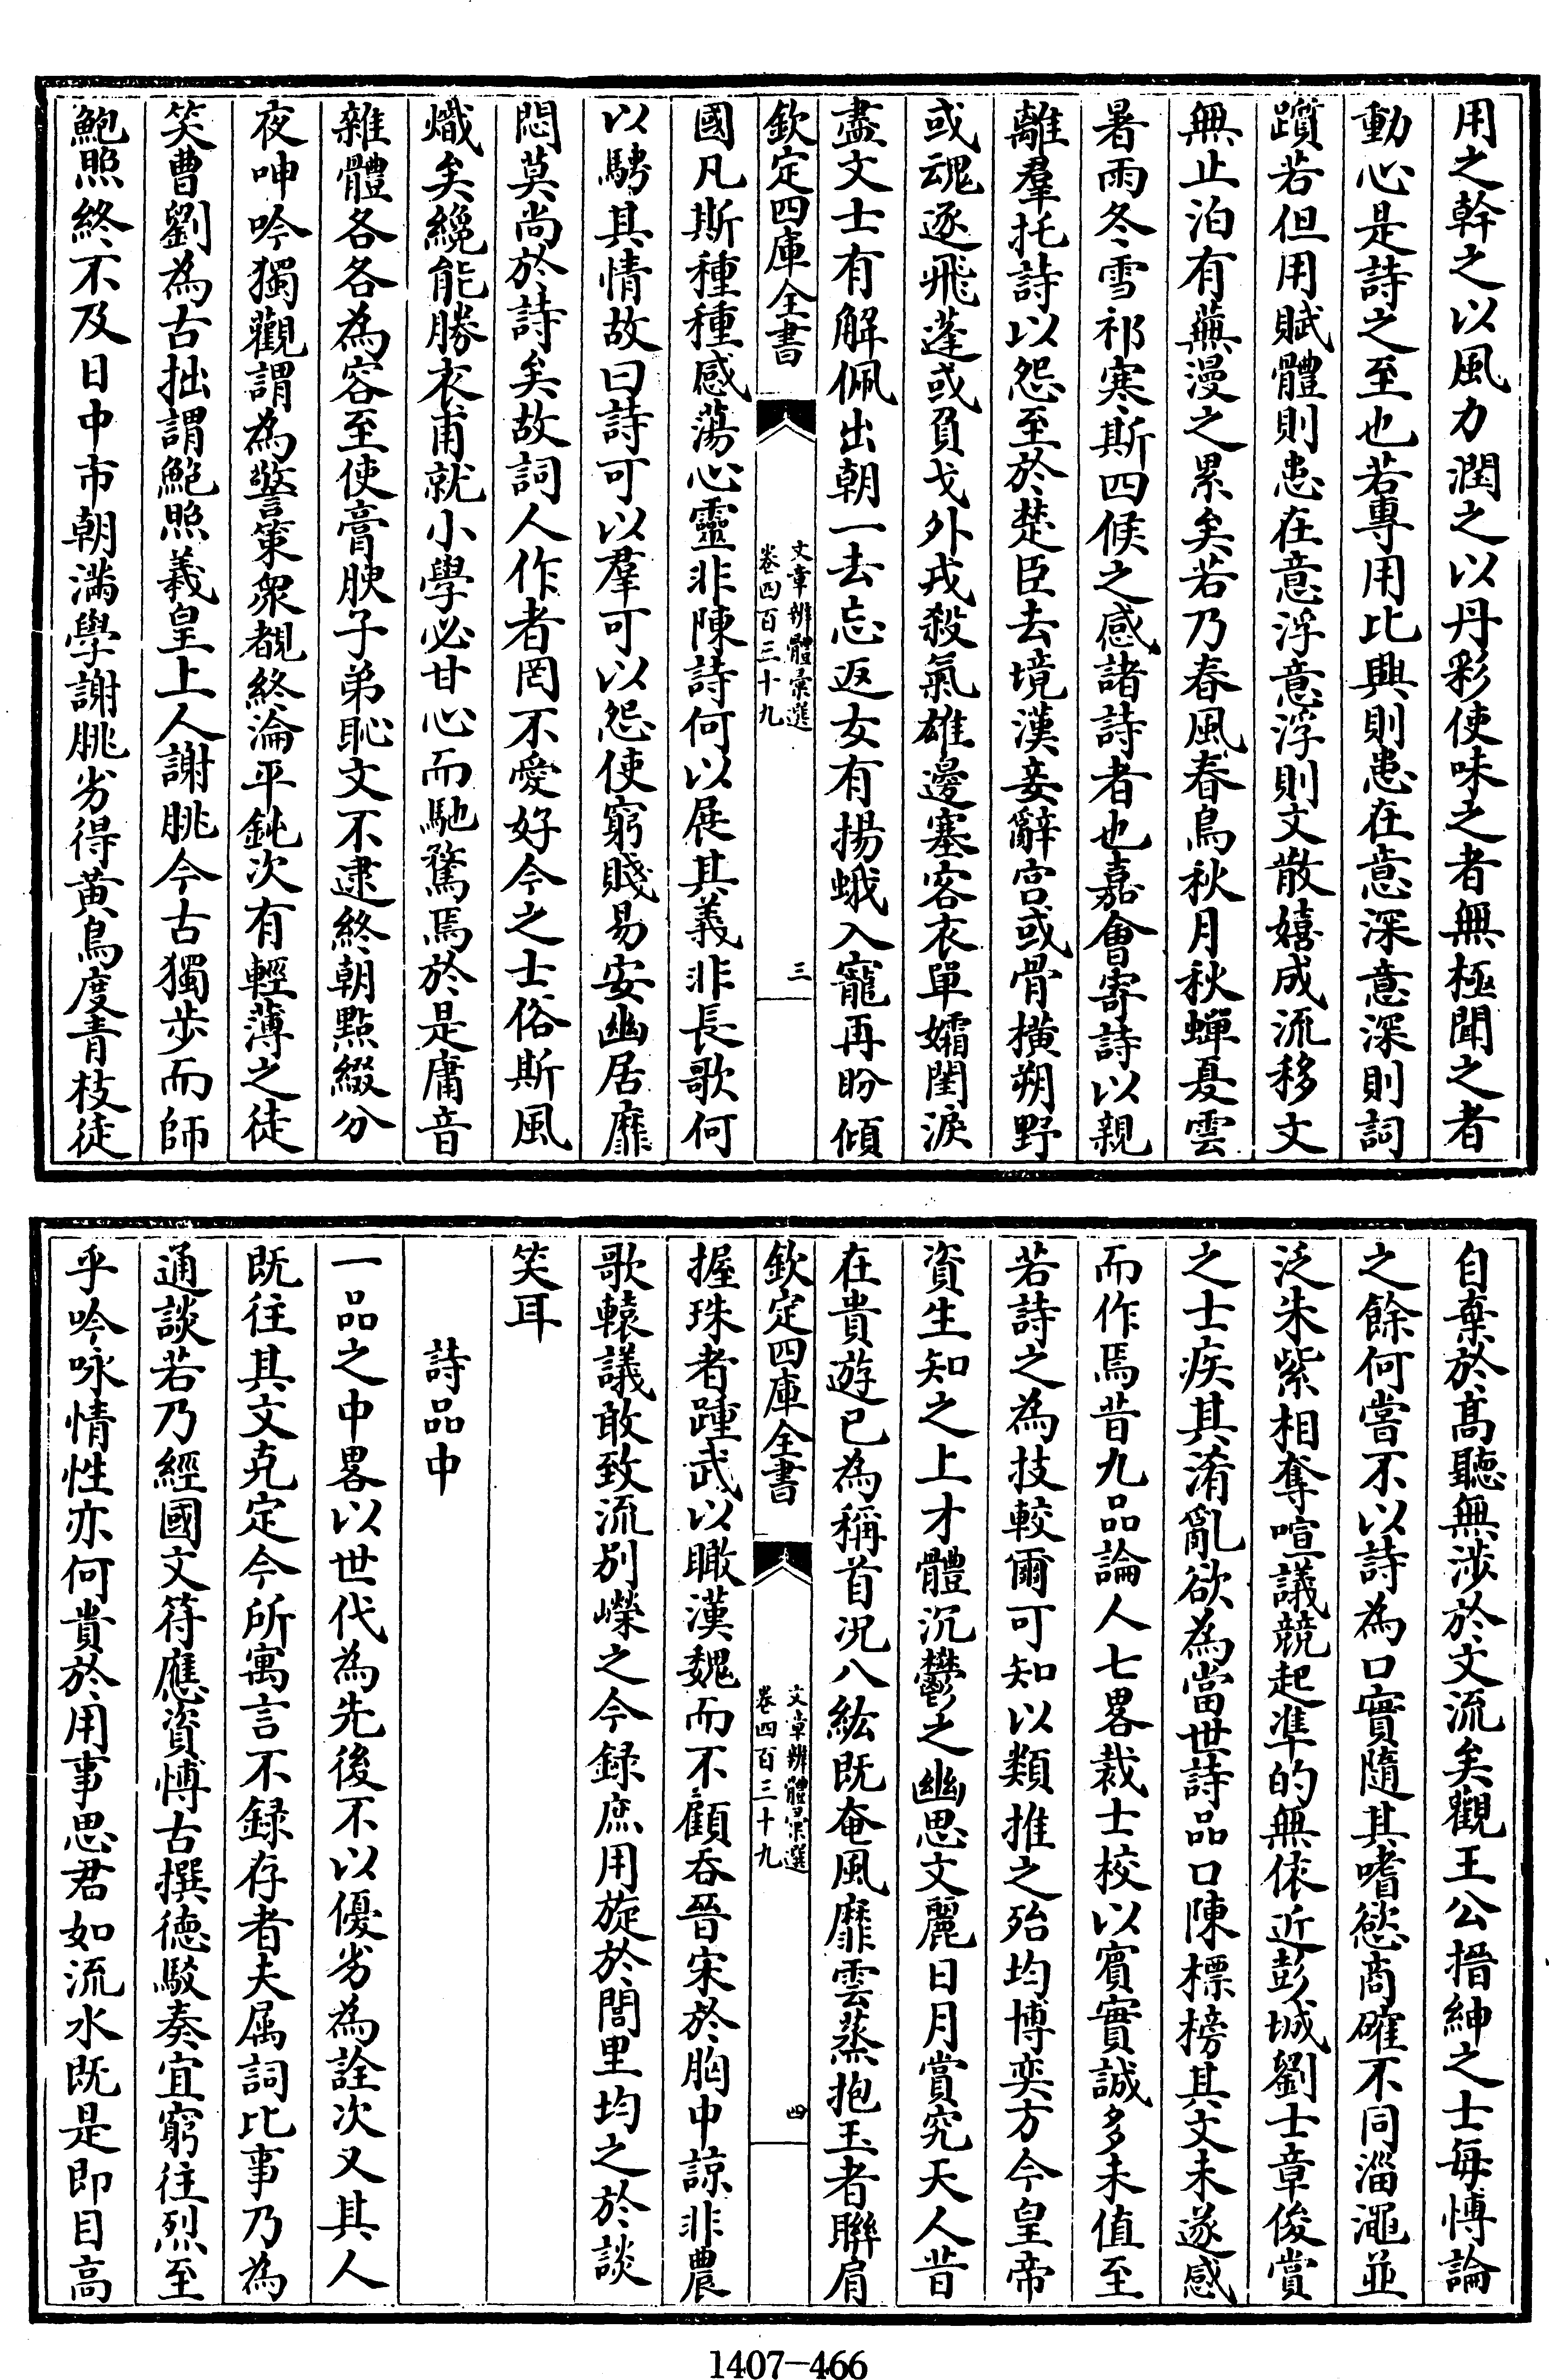 用之幹之以風力潤之以丹彩使味之者無極聞之者
動心是詩之至也若專用比興則患在意深意深則詞
躓若但用賦體則患在意浮意浮則文散嬉成流移文
無止泊有蕪漫之累矣若乃春風春鳥秋月秋蟬夏雲
暑雨冬雪祁寒斯四候之感諸詩者也嘉會寄詩以親
離羣托詩以怨至於楚臣去境漢妾辭宮或骨橫朔野
或魂逐飛蓬或負戈外戎殺氣雄邊塞客衣單孀閨淚
盡文士有解佩出朝一去忘返女有揚蛾入寵再盼傾
欽定四庫全書
文章辨體彙選
卷四百三十九
三
國凡斯種種感蕩心靈非陳詩何以展其義非長歌何
以騁其情故曰詩可以羣可以怨使窮賤易安幽居靡
悶莫尚於詩矣故詞人作者罔不愛好今之士俗斯風
熾矣纔能勝衣甫就小學必甘心而馳騖焉於是庸音
雜體各各為容至使膏腴子弟恥文不逮終朝點綴分
夜呻吟獨觀謂為警策衆覩終淪平鈍次有輕薄之徒
笑曹劉為古拙謂鮑照羲皇上人謝朓今古獨步而師
鮑照終不及日中市朝滿學謝朓劣得黃鳥度青枝徒
自棄於髙聽無涉於文流矣觀王公搢紳之士每博論
之餘何嘗不以詩為口實隨其嗜慾商確不同淄澠並
泛朱紫相奪喧議競起凖的無依近彭城劉士章俊賞
之士疾其淆亂欲為當世詩品口陳標榜其文未遂感
而作焉昔九品論人七畧裁士校以賓實誠多未值至
若詩之為技較爾可知以類推之殆均博奕方今皇帝
資生知之上才體沉鬱之幽思文麗日月賞究天人昔
在貴遊已為稱首况八紘既奄風靡雲蒸抱玉者聯肩
欽定四庫全書
文章辨體彙選
卷四百三十九
四
握珠者踵武以瞰漢魏而不顧吞晉宋於胸中諒非農
歌轅議敢致流别嶸之今録庶用旋於閭里均之於談
笑耳
詩品中
一品之中畧以世代為先後不以優劣為詮次又其人
既往其文克定今所寓言不録存者夫属詞比事乃為
通談若乃經國文符應資博古撰徳駁奏宜窮往烈至
乎吟咏情性亦何貴於用事思君如流水既是即目高
1407-466